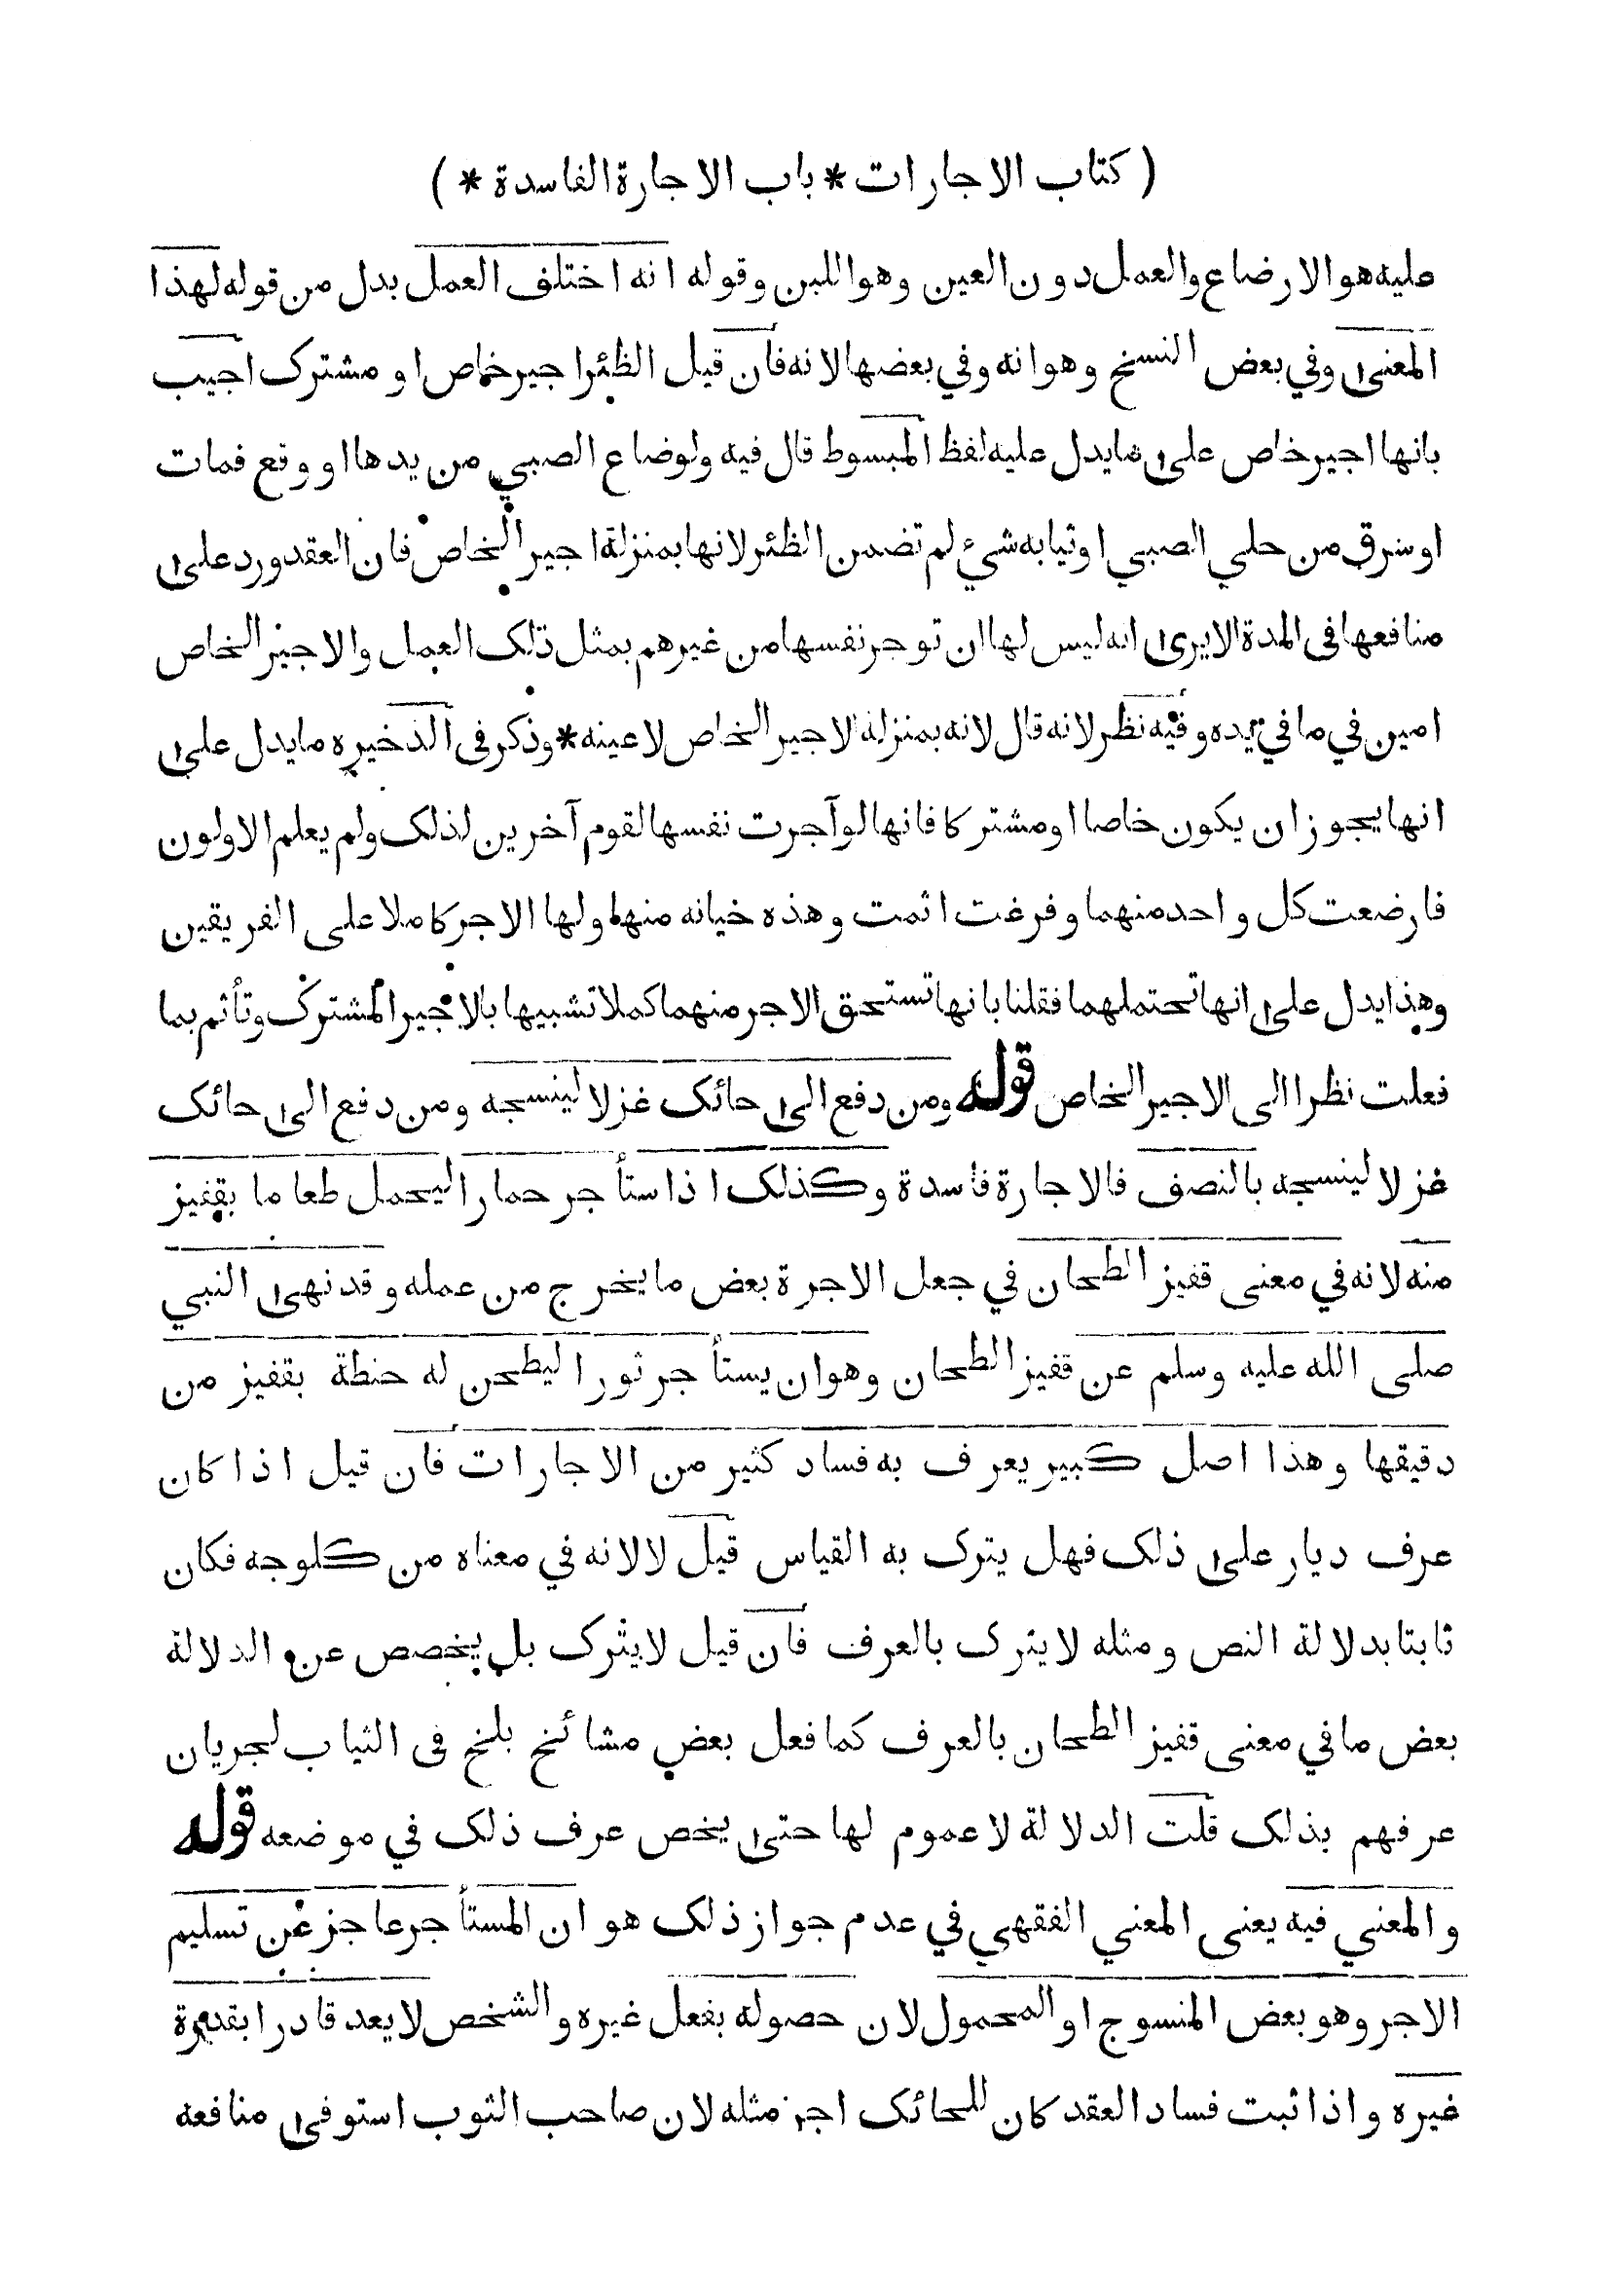 ( كتاب الاجارات * باب الاجارة الفاسدة * )
عليه هو الارضاع والعمل دون العين وهو اللبن وقوله انه اختلف العمل بدل من قوله لهذا
المعنى وفي بعض النسخ وهو انه وفي بعضها لانه فان قيل الظئر اجير خاص او مشترك اجيب
بانها اجير خاص على ما يدل عليه لفظ المبسوط قال فيه ولو ضاع الصبي من يدها او وقع فمات
او سرق من حلي الصبي او ثيابه شيء لم تضمن الظئر لانها بمنزلة اجير الخاص فان العقد ورد على
منافعها في المدة الا يرى انه ليس لها ان توجر نفسها من غيرهم بمثل ذلك العمل والاجير الخاص
امين في ما في يده وفيه نظر لانه قال لانه بمنزلة الاجير الخاص لا عينه * وذكر في الذخيره ما يدل على
انها يجوز ان يكون خاصا او مشتركا فانها لو آجرت نفسها لقوم آخرين لذلك ولم يعلم الاولون
فارضعت كل واحد منهما وفرغت اثمت وهذه خيانه منها ولها الاجر كاملا على الفريقين
وهذا يدل على انها تحتملهما فقلنا بانها تستحق الاجر منهما كملا تشبيها بالاجير المشترك وتأثم بما
فعلت نظرا الى الاجير الخاص قوله ومن دفع الى حائك غزلا لينسجه ومن دفع الى حائك
غزلا لينسجه بالنصف فالاجارة فاسدة وكذلك اذا ستأجر حمارا ليحمل طعاما بقفيز
منه لانه في معنى قفيز الطحان في جعل الاجرة بعض ما يخرج من عمله وقد نهى النبي
صلى الله عليه وسلم عن قفيز الطحان وهو ان يستأجر ثورا ليطحن له حنطة بقفيز من
دقيقها وهذا اصل كبير يعرف به فساد كثير من الاجارات فان قيل اذا كان
عرف ديار على ذلك فهل يترك به القياس قيل لا لانه في معناه من كلوجه فكان
ثابتا بدلالة النص ومثله لا يترك بالعرف فان قيل لا يترك بل يخصص عن الدلالة
بعض ما في معنى قفيز الطحان بالعرف كما فعل بعض مشائخ بلخ فى الثياب لجريان
عرفهم بذلك قلت الدلالة لا عموم لها حتى يخص عرف ذلك في موضعه قوله
والمعني فيه يعنى المعني الفقهي في عدم جواز ذلك هو ان المستأجر عاجز عن تسليم
الاجر وهو بعض المنسوج او المحمول لان حصوله بفعل غيره والشخص لا يعد قادرا بقدرة
غيره واذا ثبت فساد العقد كان للحائك اجر مثله لان صاحب الثوب استوفى منافعه